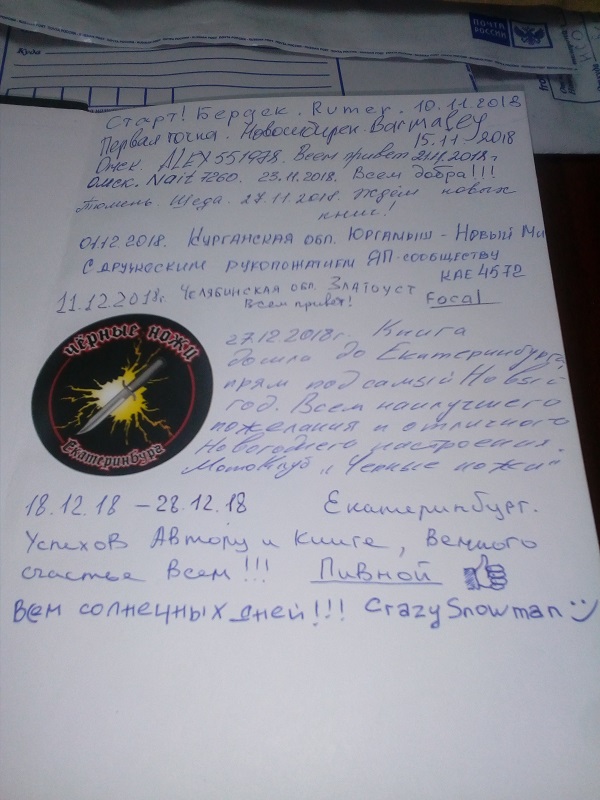 ПОЧТА
РОССИИ
Куда
Старт! Бердск. Rumer. 10.11.2018
Первая точка. Новосибирск. Barmaley
15.11.2018
Омск. ALEX551978. Всем привет 21.11.2018г
Омск. Nait7260. 23.11.2018. Всем добра!!!
Тюмень. Шеда. 27.11.2018. Ждём новых
книг!
01.12.2018. Курганская обл. Юргамыш - Новый Ми
С дружеским рукопожатием ЯП-сообществу
КАЕ4572
11.12.2018г. Челябинская обл. Златоуст
Всем привет! Focal
чёрные ножи
Екатеринбург
27.12.2018г. Книга
дошла до Екатеринбурга,
прям под самый Новый
год. Всем наилучшего
пожелания и отличного
Новогоднего настроения.
МотоКлуб „Черные ножи"
18.12.18 – 28.12.18 Екатеринбург.
Успехов Автору и Книге, Вечного
счастья Всем!!! Пивной
Всем солнечных дней!!! CrazySnowman